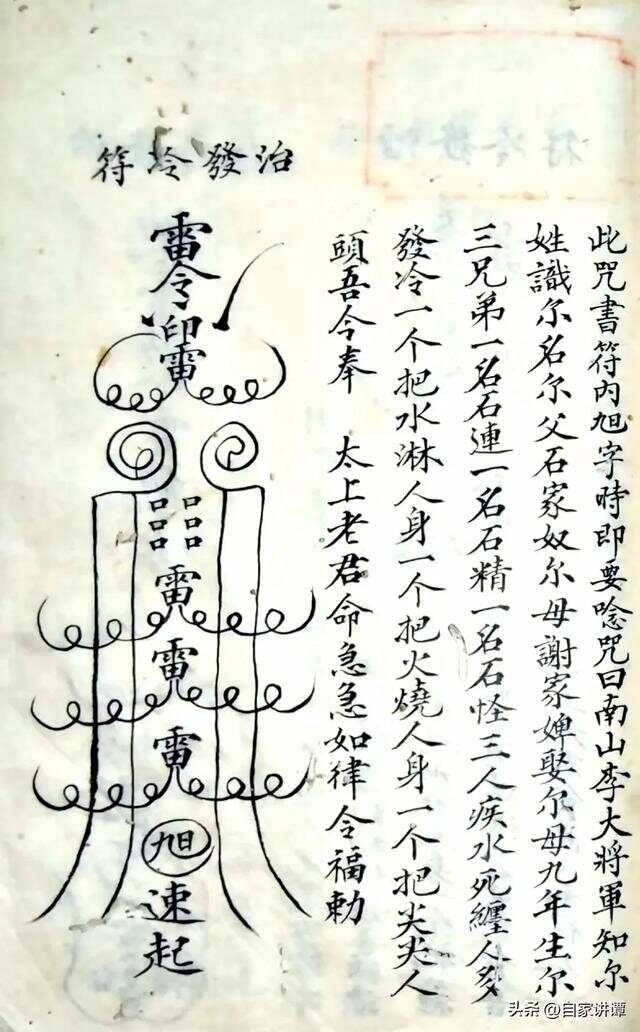 此咒書符内旭字時即要唸咒曰南山李大將軍知尔
姓識尔名尔父石家奴尔母謝家婢娶尔母九年生尔
三兄弟一名石連一名石精一名石怪三人疾水死纒人多
發冷一个把水淋人身一个把火燒人身一个把尖尖人
頭吾今奉 太上老君命急急如律令福勅
治發冷符
雷令
印雷
口口
口口
口口
雷
電
電
旭
速起
头条 @自家讲谭